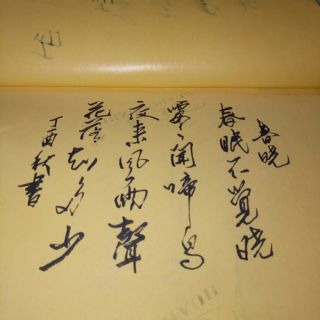 春晓
春眠不覺晓
處々闻啼鸟
夜来风雨聲
花落知多少
丁酉秋書